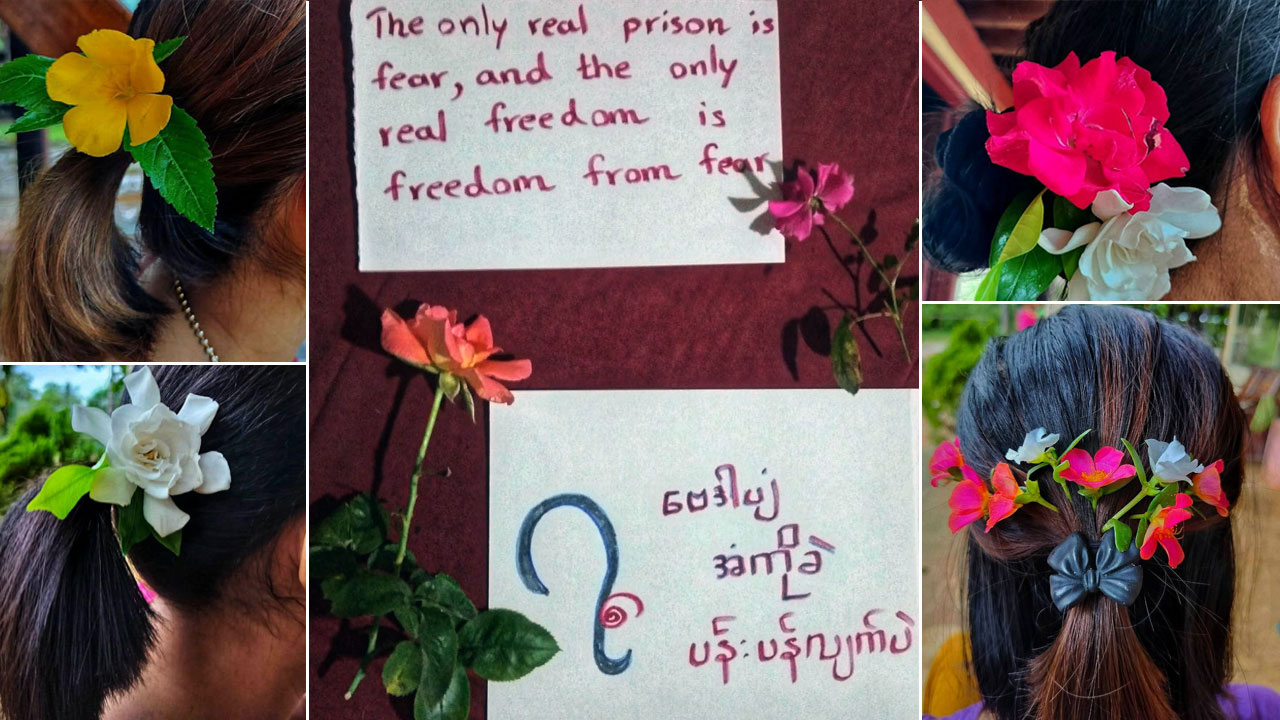 The only real prison is
fear, and the only
real freedom is
freedom from fear
၇၅
ဗေဒါပျံ
အံကိုခဲ
ပန်းပန်လျက်ပဲ